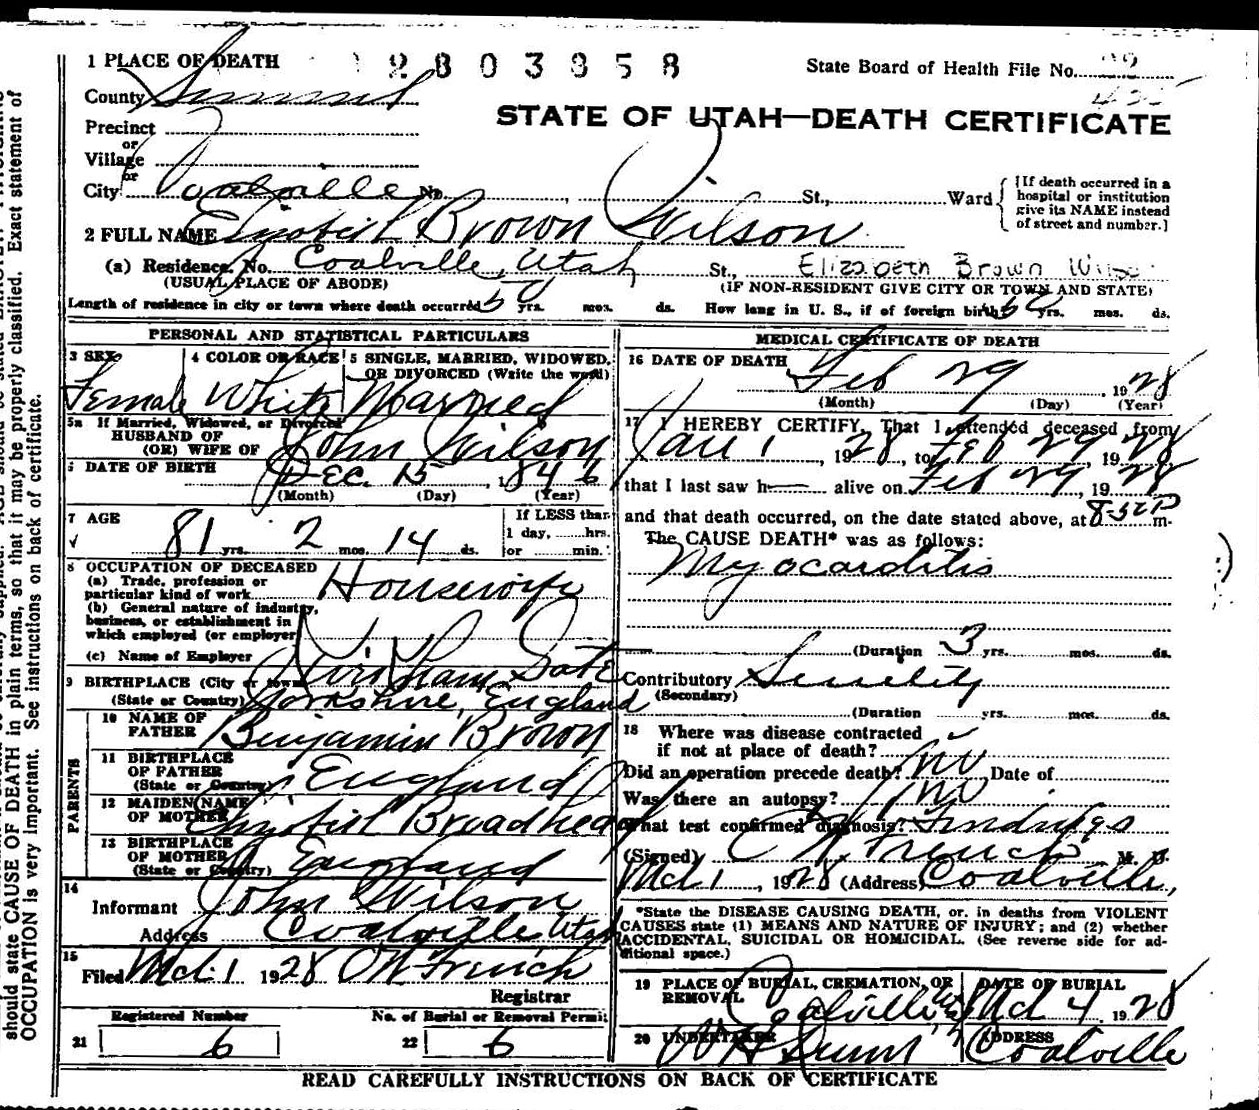 should state CAUSE OF DEATH in plain terms, so that it may be properly classified. Exact statement of
OCCUPATION is very important. See instructions on back of certificate.
1 PLACE OF DEATH
2803858
State Board of Health File No.
County Summit
STATE OF UTAH—DEATH CERTIFICATE
Precinct
or
Village
or
City Coalville No. St., Ward
[If death occurred in a
hospital or institution
give its NAME instead
of street and number.]
2 FULL NAME Elizabeth Brown Wilson
(a) Residence. No. Coalville, Utah St., Elizabeth Brown Wilson
(USUAL PLACE OF ABODE) (IF NON-RESIDENT GIVE CITY OR TOWN AND STATE)
Length of residence in city or town where death occurred 50 yrs. mos. ds. How long in U. S., if of foreign birth? yrs. mos. ds.
PERSONAL AND STATISTICAL PARTICULARS
3 SEX 4 COLOR OR RACE 5 SINGLE, MARRIED, WIDOWED,
OR DIVORCED (Write the word)
Female White Married
5a If Married, Widowed, or Divorced
HUSBAND OF
(OR) WIFE OF John Wilson
6 DATE OF BIRTH Dec. 15, 1846
(Month) (Day) (Year)
7 AGE If LESS than
1 day, hrs.
81 yrs. 2 mos. 14 ds. or min.
8 OCCUPATION OF DECEASED
(a) Trade, profession or
particular kind of work Housewife
(b) General nature of industry,
business, or establishment in
which employed (or employer
(c) Name of Employer
9 BIRTHPLACE (City or town)
(State or Country) Yorkshire, England
PARENTS
10 NAME OF
FATHER Benjamin Brown
11 BIRTHPLACE
OF FATHER
(State or Country) England
12 MAIDEN NAME
OF MOTHER Elizabeth Broadhead
13 BIRTHPLACE
OF MOTHER
(State or Country) England
14
Informant John Wilson
Address Coalville Utah
15
Filed Mch. 1 1928 French
Registrar
Registered Number No. of Burial or Removal Permit
21 6 22 6
MEDICAL CERTIFICATE OF DEATH
16 DATE OF DEATH
Feb 29, 1928
(Month) (Day) (Year)
17 I HEREBY CERTIFY, That I attended deceased from
Jan 1, 1928, to Feb 29 1928
that I last saw h— alive on Feb 29, 1928
and that death occurred, on the date stated above, at m.
The CAUSE DEATH* was as follows:
Myocarditis
(Duration 3 yrs. mos. ds.
Contributory Senility
(Secondary)
(Duration yrs. mos. ds.
18 Where was disease contracted
if not at place of death?
Did an operation precede death? no Date of
Was there an autopsy? no
What test confirmed diagnosis? Findings
(Signed) French M. D.
Mch 1, 1928 (Address) Coalville,
*State the DISEASE CAUSING DEATH, or, in deaths from VIOLENT
CAUSES state (1) MEANS AND NATURE OF INJURY; and (2) whether
ACCIDENTAL, SUICIDAL OR HOMICIDAL. (See reverse side for ad-
ditional space.)
19 PLACE OF BURIAL, CREMATION, OR
REMOVAL
Coalville
DATE OF BURIAL
Mch 4, 1928
20 UNDERTAKER
ADDRESS
Coalville
READ CAREFULLY INSTRUCTIONS ON BACK OF CERTIFICATE